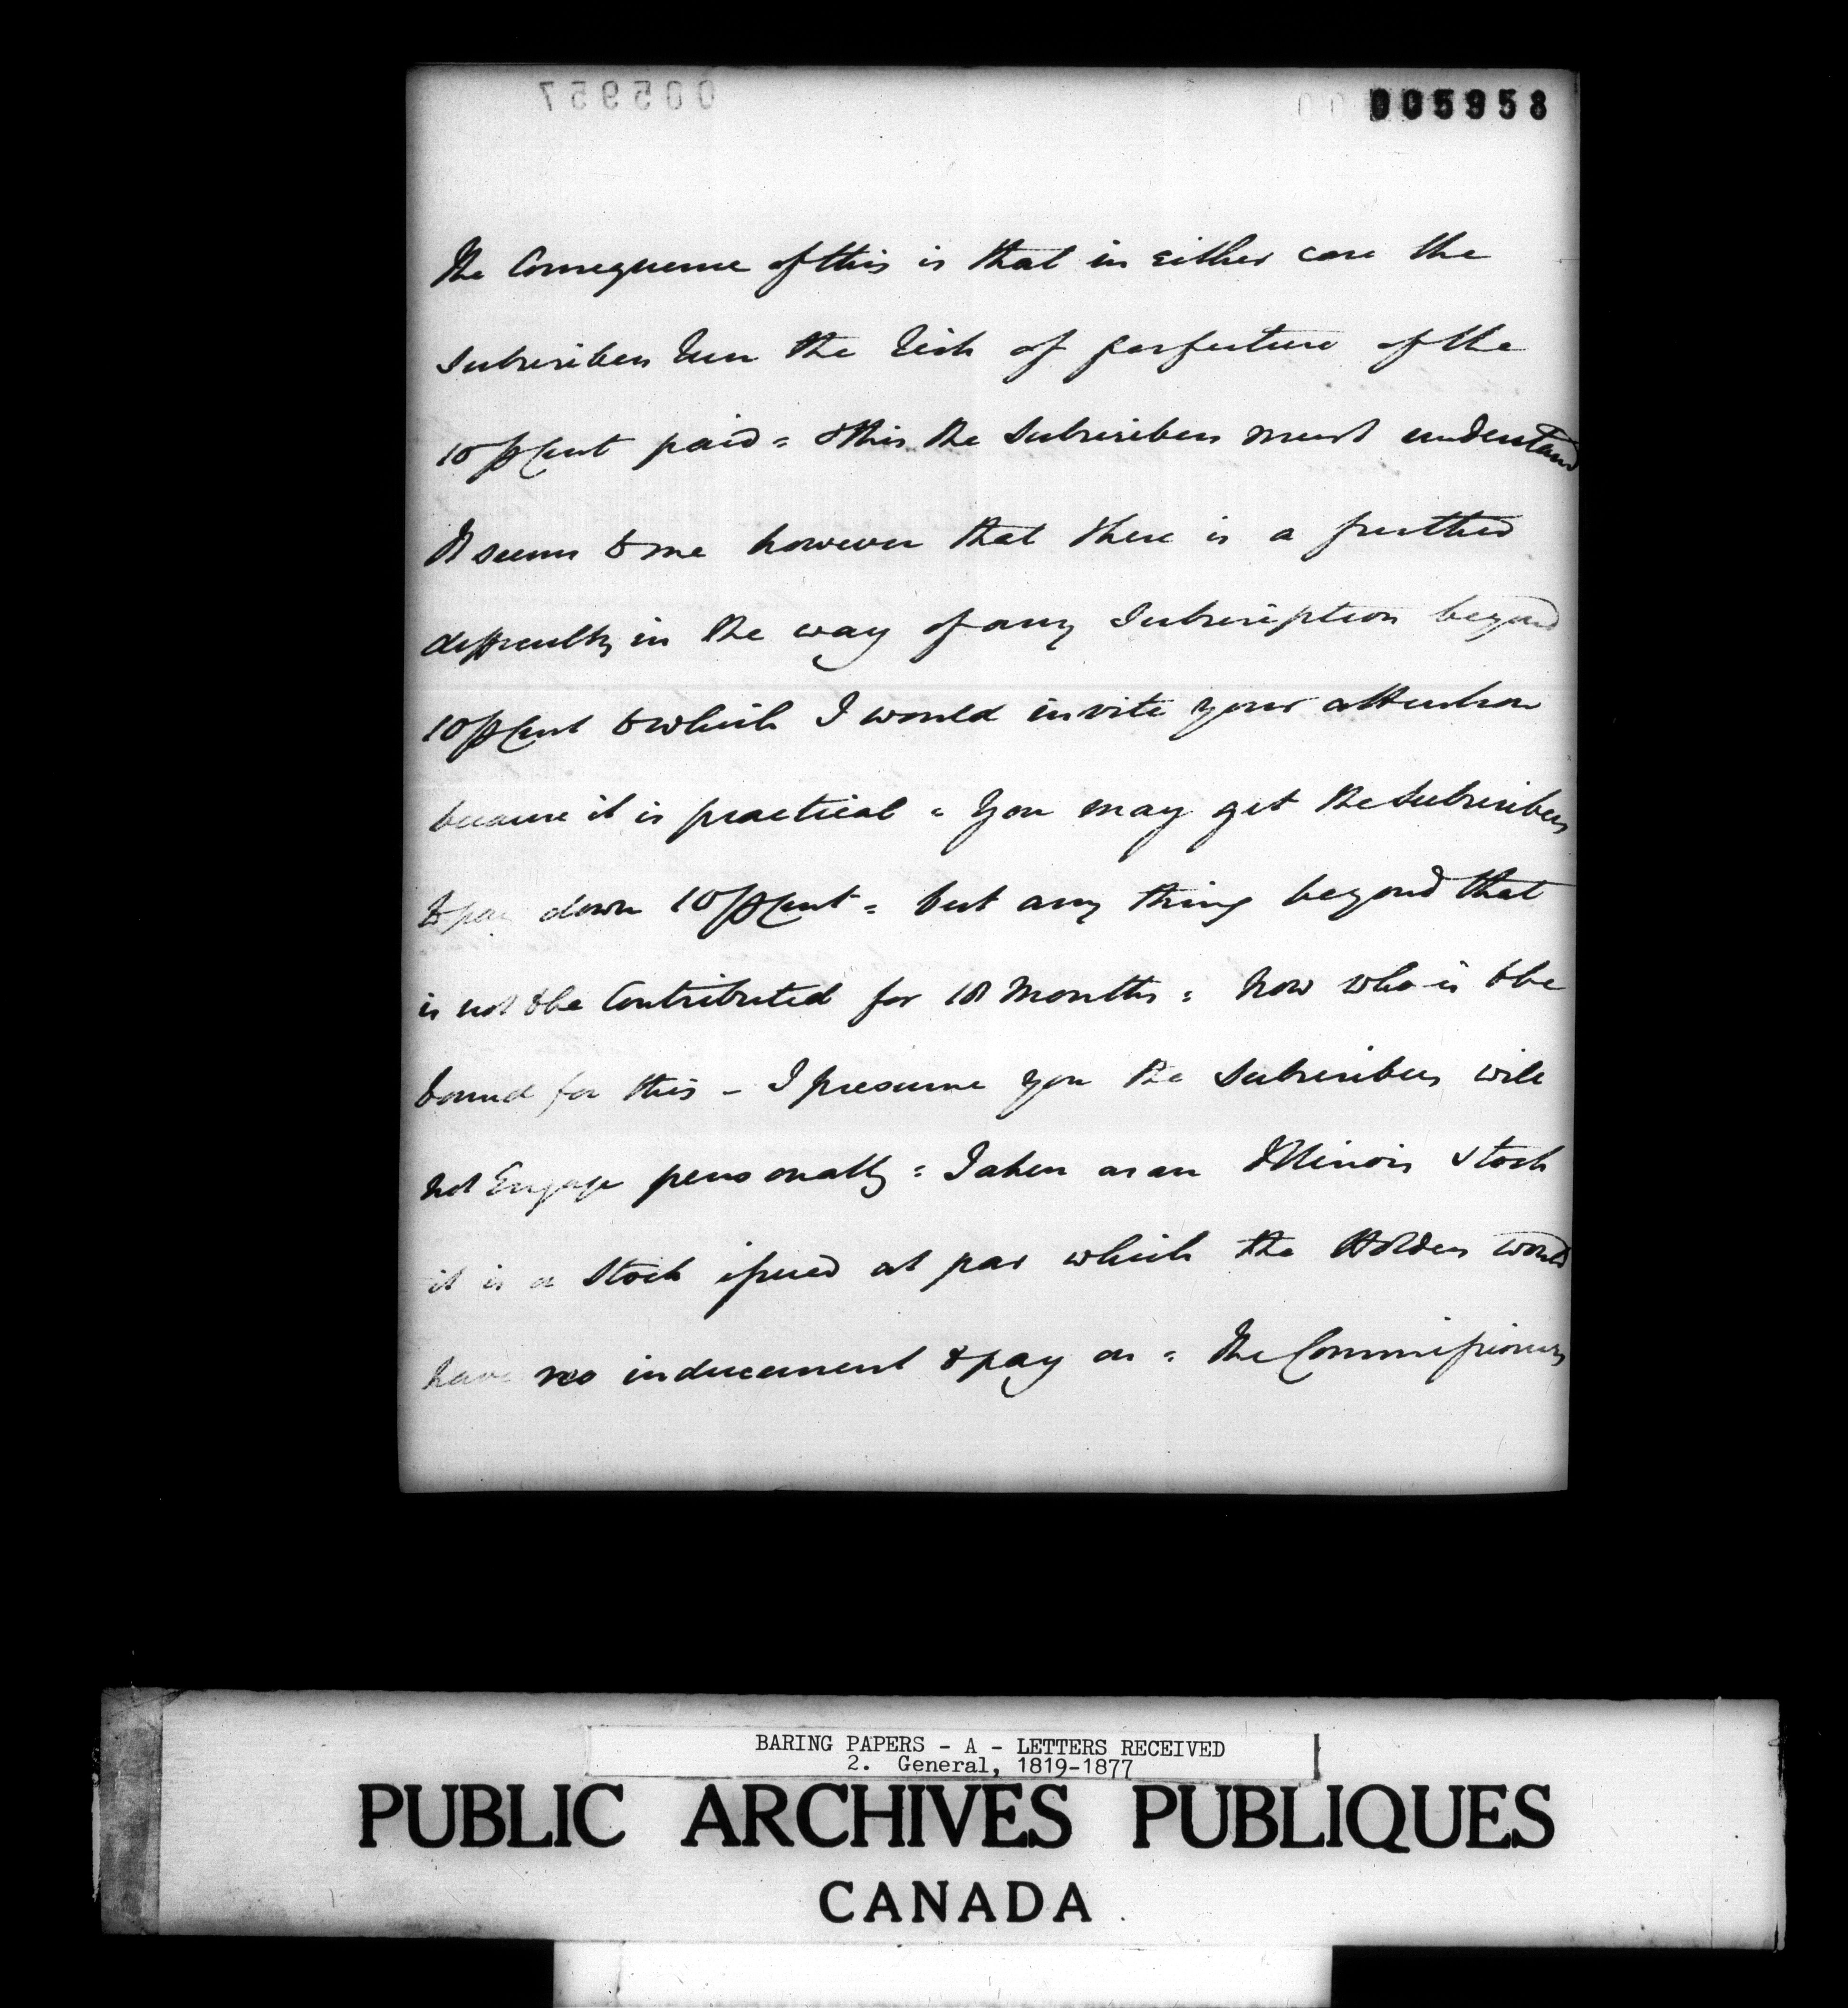 005957
005958
The Consequence of this is that in either case the
Subscribers run the risk of forfeiture of the
10 ⅌ Cent paid = & this the Subscribers must understand
It seems to me however that there is a further
difficulty in the way of any Subscription beyond
10 ⅌ Cent to which I would invite your attention
because it is practical = You may get the Subscribers
to pay down 10 ⅌ Cent = but any thing beyond that
is not to be Contributed for 18 Months = Now who is to be
bound for this – I presume you the Subscribers will
not Engage personally = Taken as an Illinois Stock
it is a Stock issued at par which the Holders would
have no inducement to pay on = The Commissioners
BARING PAPERS - A - LETTERS RECEIVED
2. General, 1819-1877
PUBLIC ARCHIVES PUBLIQUES
CANADA